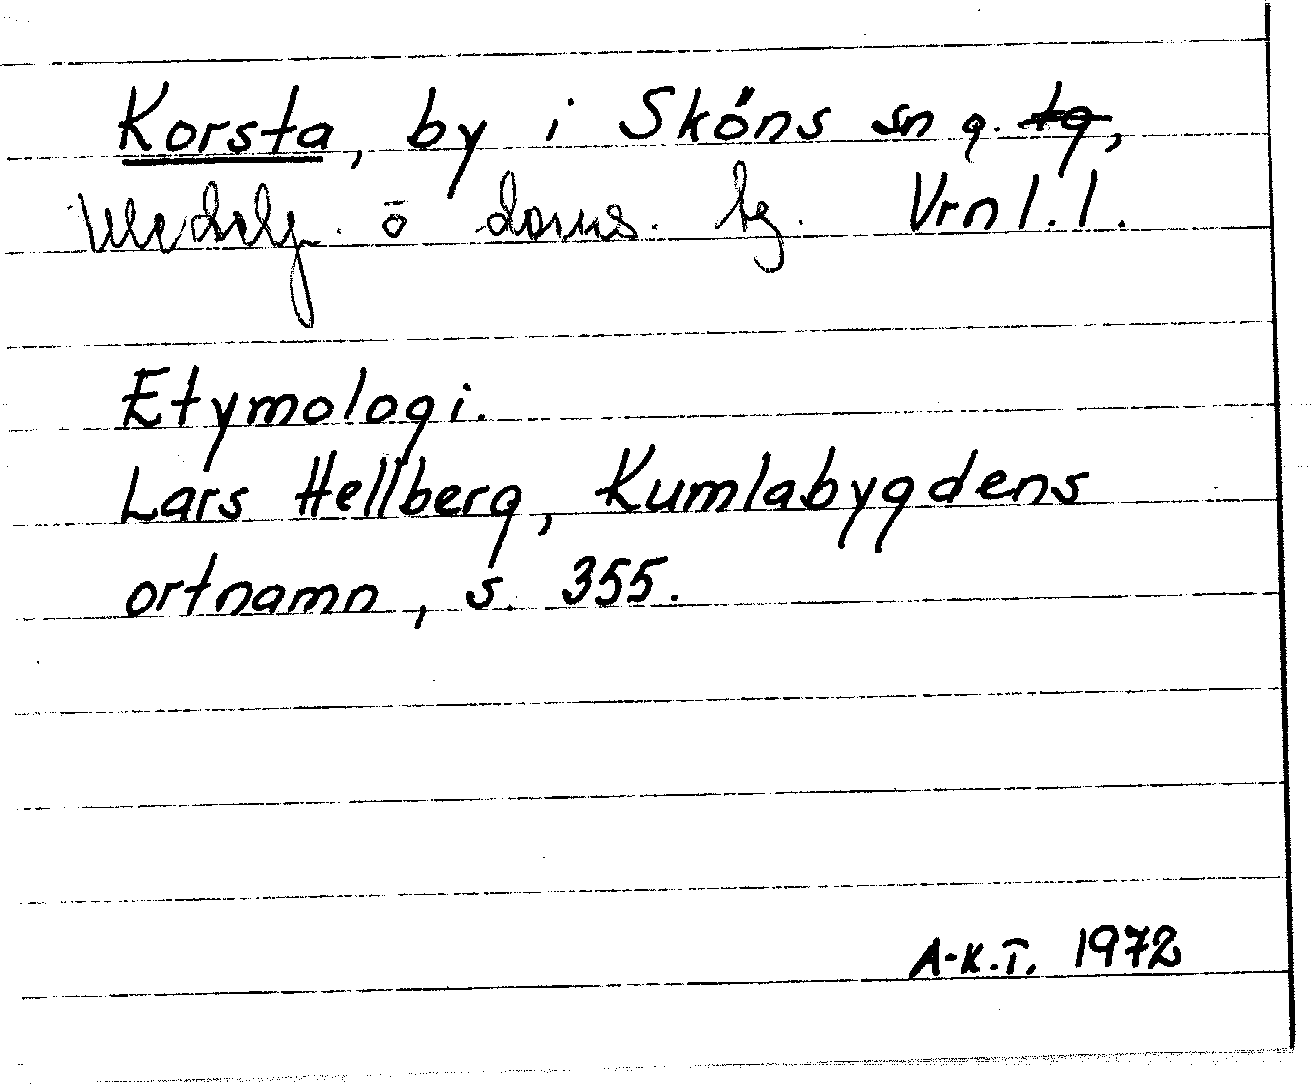 Korsta, by i Sköns sn o. tg,
Medelp. ö doms. tg. Vrnl. l.
Etymologi.
Lars Hellberg, Kumlabygdens
ortnamn, s. 355.
A-K.T. 1972